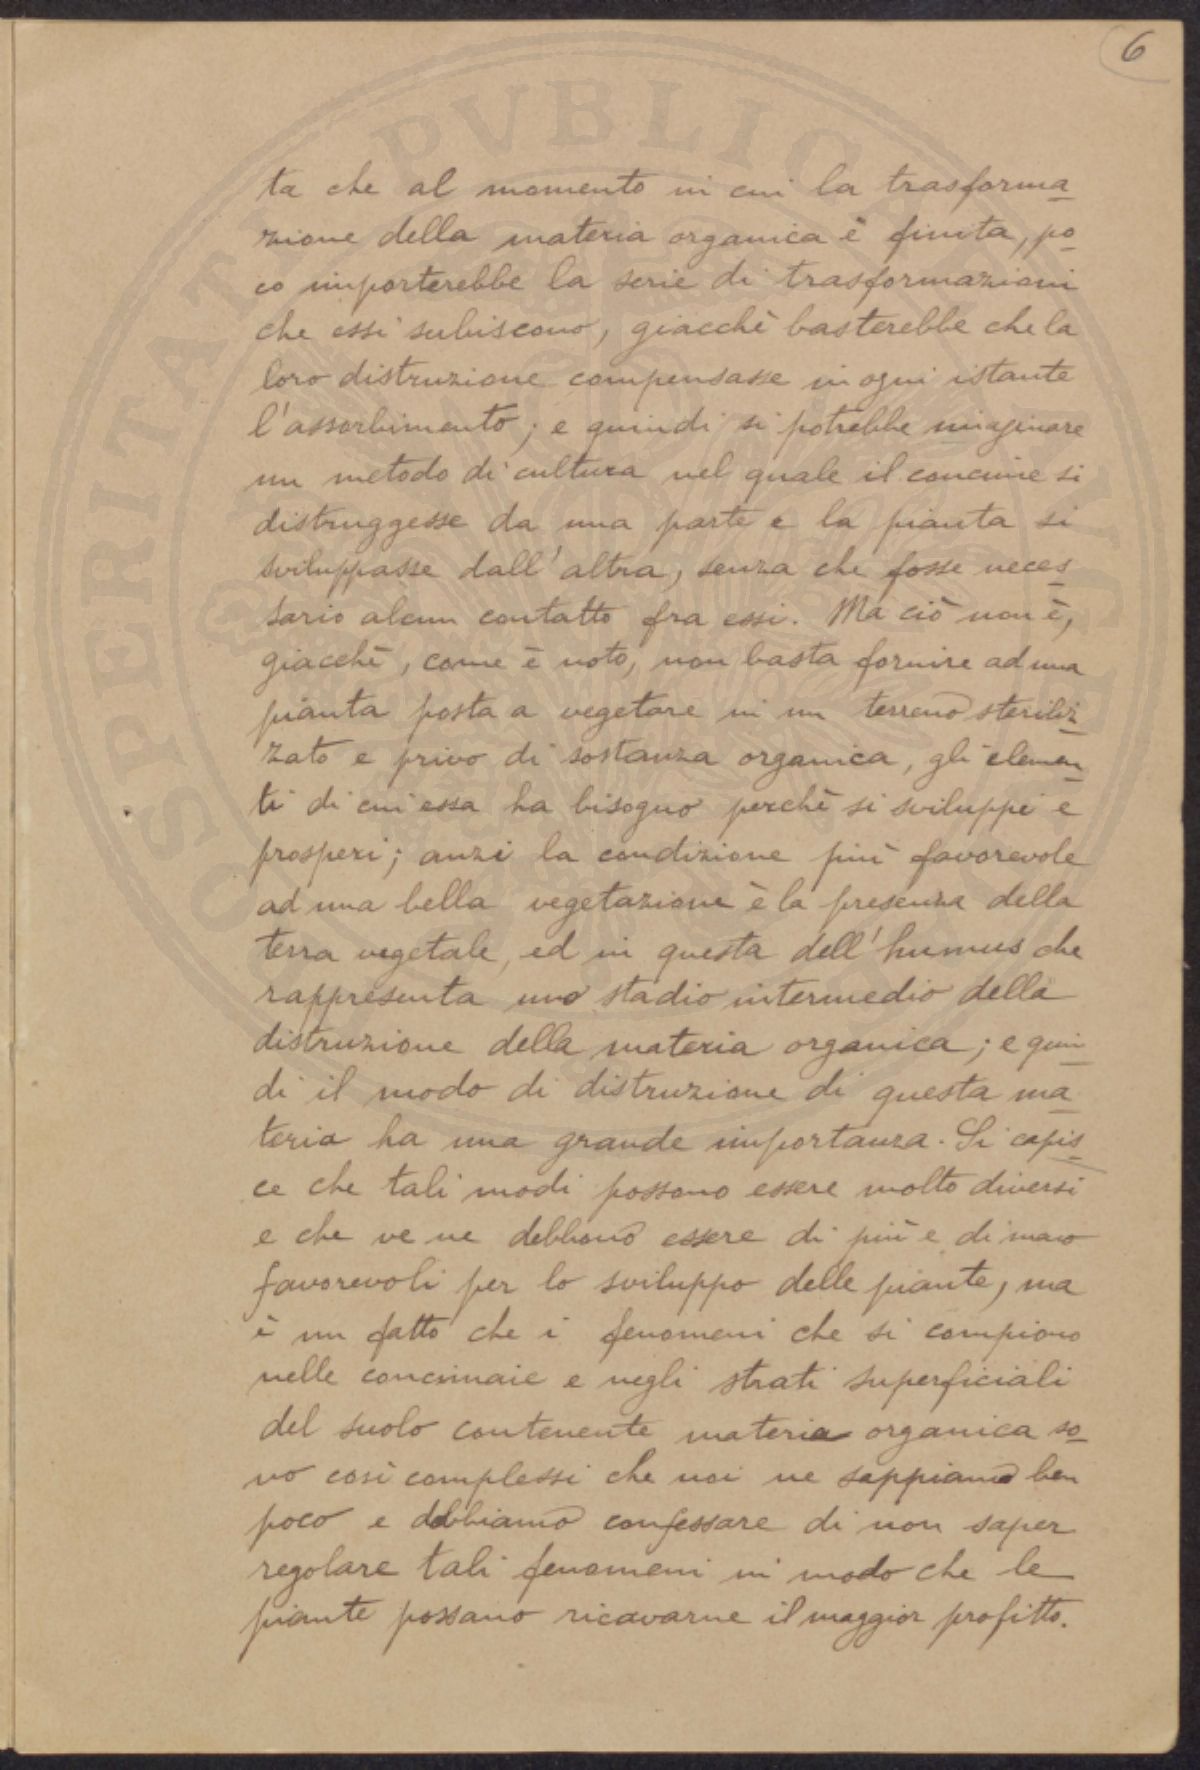 6
ta che al momento in cui la trasforma-
zione della materia organica è finita, po-
co importerebbe la serie di trasformazioni
che essi subiscono, giacchè basterebbe che la
loro distruzione compensasse in ogni istante
l'assorbimento; e quindi si potrebbe imaginare
un metodo di cultura nel quale il concime si
distruggesse da una parte e la pianta si
sviluppasse dall'altra, senza che fosse neces-
sario alcun contatto fra essi. Ma ciò non è,
giacchè, come è noto, non basta fornire ad una
pianta posta a vegetare in un terreno steriliz-
zato e privo di sostanza organica, gli elemen-
ti di cui essa ha bisogno perchè si sviluppi e
prosperi; anzi la condizione più favorevole
ad una bella vegetazione è la presenza della
terra vegetale, ed in questa dell'humus che
rappresenta uno stadio intermedio della
distruzione della materia organica; e quin-
di il modo di distruzione di questa ma-
teria ha una grande importanza. Si capis-
ce che tali modi possono essere molto diversi
e che ve ne debbono essere di più e di meno
favorevoli per lo sviluppo delle piante, ma
è un fatto che i fenomeni che si compiono
nelle concimaie e negli strati superficiali
del suolo contenente materia organica so-
no così complessi che noi ne sappiamo ben
poco e dobbiamo confessare di non saper
regolare tali fenomeni in modo che le
piante possano ricavarne il maggior profitto.